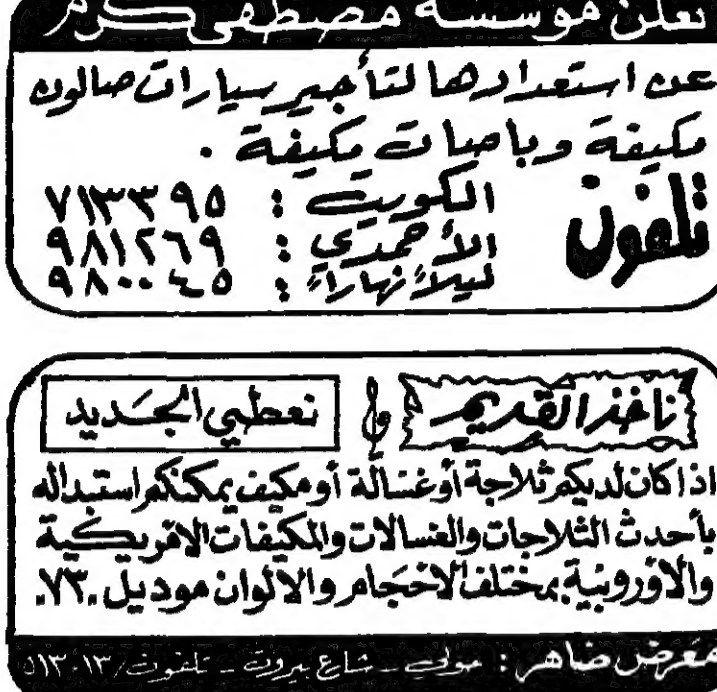 تعلن مؤسسة مصطفى كرم
عن استعدادها لتأجير سيارات صالون
مكيفة وباصات مكيفة .
تلفون
الكويت : ٧١٣٣٩٥
الأحمدي : ٩٨١٢٦٩
ليلاً نهاراً : ٩٨٠٠٤٥
نأخذ القديم و نعطي الجديد
اذا كان لديكم ثلاجة أو غسالة أو مكيف يمكنكم استبداله
بأحدث الثلاجات والغسالات والمكيفات الامريكية
والأوروبية بمختلف الاحجام والألوان موديل ٧٣.
معرض ضاهر : حولي - شارع بيروت - تلفون /